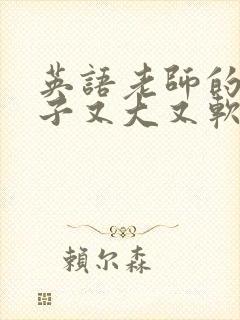 英語老師的
子又大又軟
賴尔森